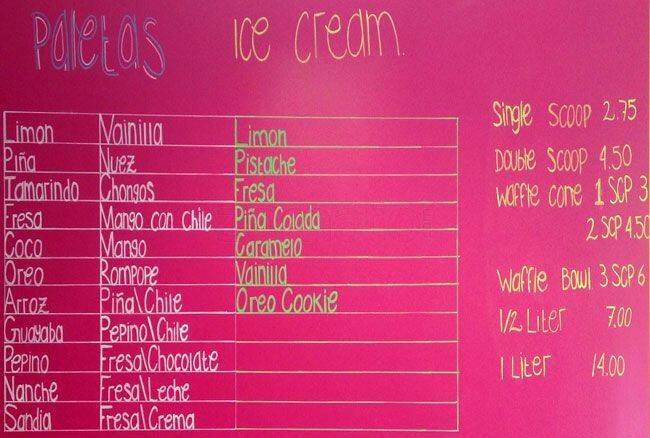 Paletas Ice Cream.
Limon Vainilla Limon
Piña Nuez Pistache
Tamarindo Chongos Fresa
Fresa Mango con Chile Piña Colada
Coco Mango Caramelo
Oreo Rompope Vainilla
Arroz Piña\Chile Oreo Cookie
Guayaba Pepino\Chile
Pepino Fresa\Chocolate
Nanche Fresa\Leche
Sandia Fresa\Crema
Single Scoop 2.75
Double Scoop 4.50
Waffle Cone 1 SCP 3
2 SCP 4.50
Waffle Bowl 3 SCP 6
1/2 Liter 7.00
1 Liter 14.00